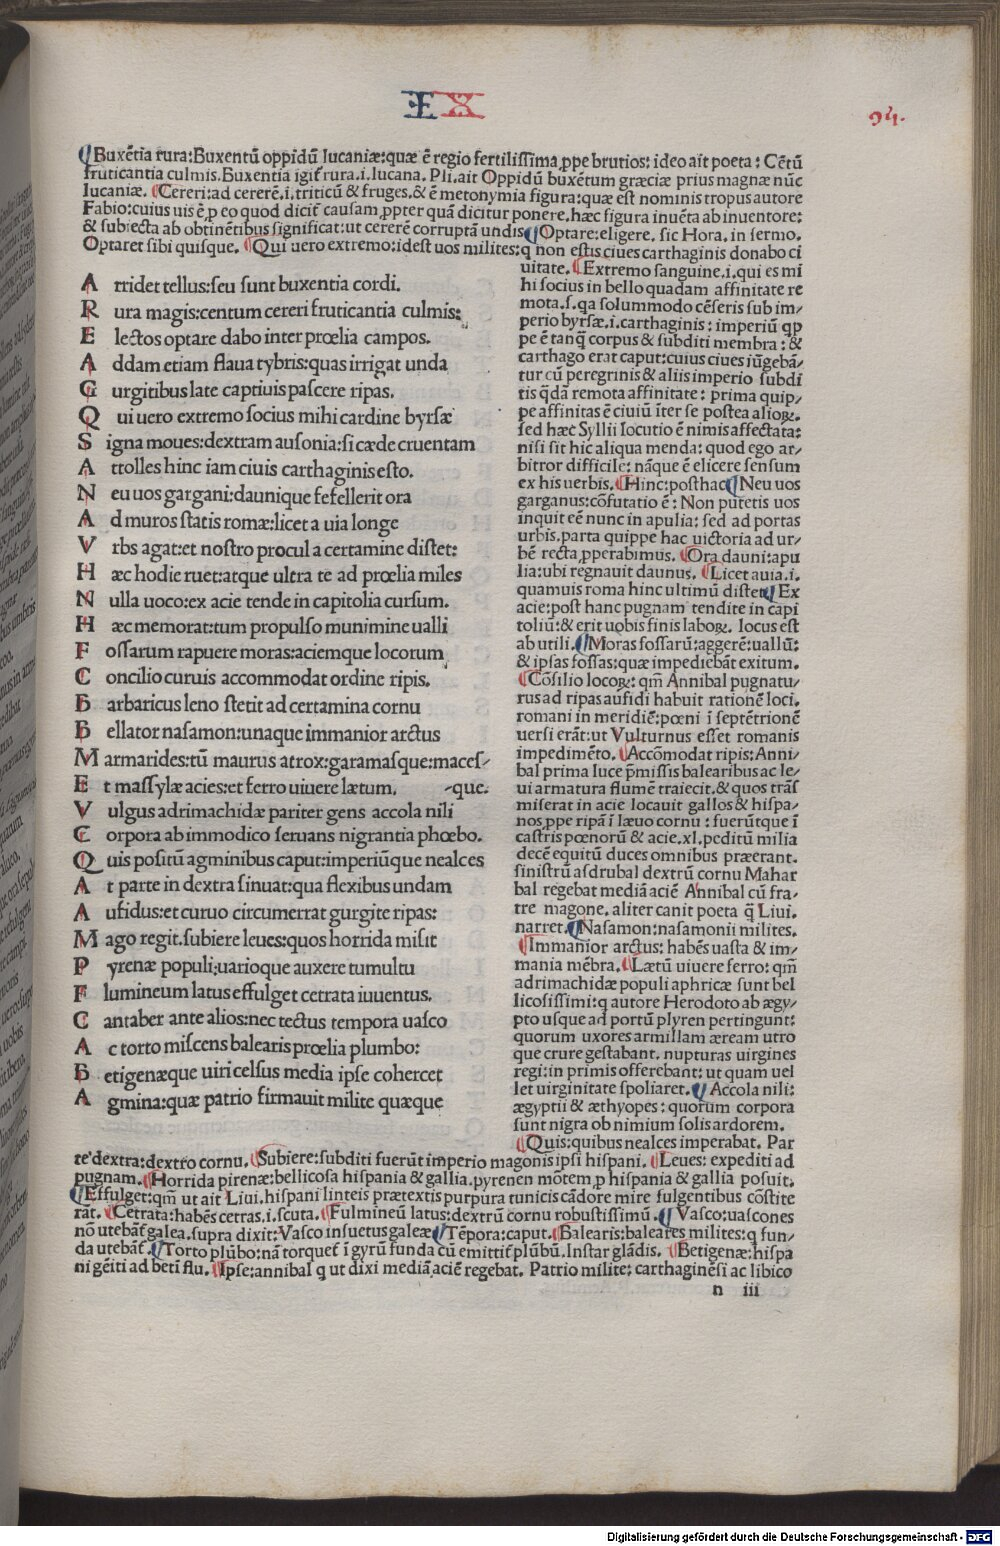 IX
94.
¶Buxētia rura:Buxentū oppidū lucaniæ:quæ ē regio fertilissima ꝓpe brutios: ideo ait poeta: Cētū
fruticantia culmis. Buxentia igit̄ rura .i. lucana. Pli. ait Oppidū buxētum græciæ prius magnæ nūc
lucaniæ. ¶Cereri:ad cererē .i. triticū & fruges, & ē metonymia figura: quæ est nominis tropus autore
Fabio:cuius uis ē, p eo quod dicit̄ causam, ꝓpter quā dicitur ponere. hæc figura inuēta ab inuentore:
& subiecta ab obtinētibus significat: ut cererē corruptā undis ¶Optare: eligere. sic Hora. in sermo.
Optaret sibi quisque. ¶Qui uero extremo: idest uos milites: q non estis ciues carthaginis donabo ci
A rridet tellus: seu sunt buxentia cordi.
R ura magis: centum cereri fruticantia culmis:
E lectos optare dabo inter prœlia campos.
A ddam etiam flaua tybris: quas irrigat unda
G urgitibus late captiuis pascere ripas.
Q ui uero extremo socius mihi cardine byrsæ
S igna moues: dextram ausonia: si cæde cruentam
A ttolles hinc iam ciuis carthaginis esto.
N eu uos gargani: daunique fefellerit ora
A d muros statis romæ: licet a uia longe
V rbs agat: et nostro procul a certamine distet:
H æc hodie ruet: atque ultra te ad prœlia miles
N ulla uoco: ex acie tende in capitolia cursum.
H æc memorat: tum propulso munimine ualli
F ossarum rapuere moras: aciemque locorum
C oncilio curuis accommodat ordine ripis.
B arbaricus leno stetit ad certamina cornu
B ellator nasamon: unaque immanior arctus
M armarides: tū maurus atrox: garamasque: maces-
E t massylæ acies: et ferro uiuere lætum. -que.
V ulgus adrimachidæ pariter gens accola nili
C orpora ab immodico seruans nigrantia phœbo.
Q uis positū agminibus caput: imperiūque nealces
A t parte in dextra sinuat: qua flexibus undam
A ufidus: et curuo circumerrat gurgite ripas:
M ago regit. subiere leues: quos horrida misit
P yrenæ populi: uarioque auxere tumultu
F lumineum latus effulget cetrata iuuentus.
C antaber ante alios: nec tectus tempora uasco
A c torto miscens balearis prœlia plumbo:
B etigenæque uiri celsus media ipse cohercet
A gmina: quæ patrio firmauit milite quæque
uitate. ¶Extremo sanguine .i. qui es mi
hi socius in bello quadam affinitate re
mota. s. qa solummodo cēseris sub im-
perio byrsæ .i. carthaginis: imperiū qp
pe ē tanq̄ corpus & subditi membra: &
carthago erat caput: cuius ciues iūgebā-
tur cū peregrinis & aliis imperio subdi
tis q̄dā remota affinitate: prima quip-
pe affinitas ē ciuiū īter se postea alioꝝ.
sed hæc Syllii locutio ē nimis affectata:
nisi sit hic aliqua menda: quod ego ar-
bitror difficile: nāque ē elicere sensum
ex his uerbis. ¶Hinc: posthac ¶Neu uos
garganus: cōfutatio ē: Non putetis uos
inquit eē nunc in apulia: sed ad portas
urbis. parta quippe hac uictoria ad ur-
bē recta ꝓperabimus. ¶Ora dauni: apu
lia: ubi regnauit daunus. ¶Licet auia .i.
quamuis roma hinc ultimū distet ¶Ex
acie: post hanc pugnam tendite in capi
toliū: & erit uobis finis laboꝝ. locus est
ab utili. ¶Moras fossarū: aggerē: uallū:
& ipsas fossas: quæ impediebāt exitum.
¶Cōsilio locoꝝ: qm̄ Annibal pugnatu-
rus ad ripas aufidi habuit rationē loci.
romani in meridiē: pœni ī septētrionē
uersi erāt: ut Vulturnus esset romanis
impedimēto. ¶Accōmodat ripis: Anni-
bal prima luce p̄missis balearibus ac le-
ui armatura flumē traiecit. & quos trās
miserat in acie locauit gallos & hispa-
nos ꝓpe ripā ī læuo cornu: fuerūtque ī
castris pœnorū & acie .xl. peditū milia
decē equitū duces omnibus præerant.
sinistrū asdrubal dextrū cornu Mahar
bal regebat mediā aciē Annibal cū fra-
tre magone. aliter canit poeta q̄ Liui.
narret. ¶Nasamon: nasamonii milites.
¶Immanior arctus: habēs uasta & im-
mania mēbra. ¶Lætū uiuere ferro: qm̄
adrimachidæ populi aphricæ sunt bel
licosissimi: q autore Herodoto ab ægy-
pto usque ad portū plyren pertingunt:
quorum uxores armillam æream utro
que crure gestabant. nupturas uirgines
regi: in primis offerebant: ut quam uel
let uirginitate spoliaret. ¶Accola nili:
ægyptii & æthyopes: quorum corpora
sunt nigra ob nimium solis ardorem.
¶Quis: quibus nealces imperabat. Par
te dextra: dextro cornu. ¶Subiere: subditi fuerūt imperio magonis ipsi hispani. ¶Leues: expediti ad
pugnam. ¶Horrida pirenæ: bellicosa hispania & gallia. pyrenen mōtem ꝑ hispania & gallia posuit.
¶Effulget: qm̄ ut ait Liui. hispani linteis prætextis purpura tunicis cādore mire fulgentibus cōstite
rāt. ¶Cetrata: habēs cetras .i. scuta. ¶Fulmineū latus: dextrū cornu robustissimū. ¶Vasco: uascones
nō utebāt̄ galea. supra dixit: Vasco insuetus galeæ ¶Tēpora: caput. ¶Balearis: baleares milites: q fun-
da utebāt̄. ¶Torto plūbo: nā torquet̄ ī gyrū funda cū emittit̄ plūbū. Instar glādis. ¶Betigenæ: hispa
ni gēiti ad beti flu. ¶Ipse: annibal q ut dixi mediā aciē regebat. Patrio milite: carthaginēsi ac libico
n iii
Digitalisierung gefördert durch die Deutsche Forschungsgemeinschaft - DFG